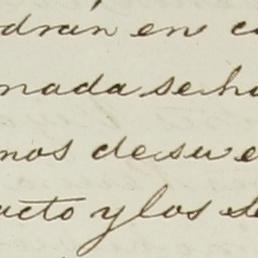 drán en c
nada se ha
mos de su e
acto y los se